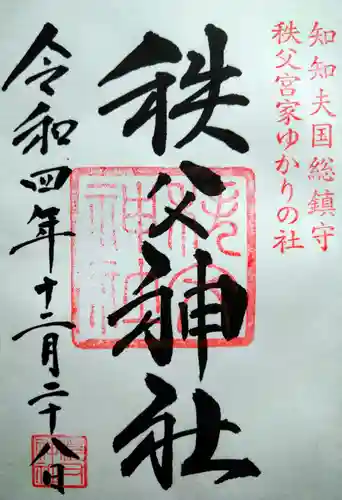 知知夫国総鎮守
秩父宮家ゆかりの社
秩父神社
令和四年十二月二十八日